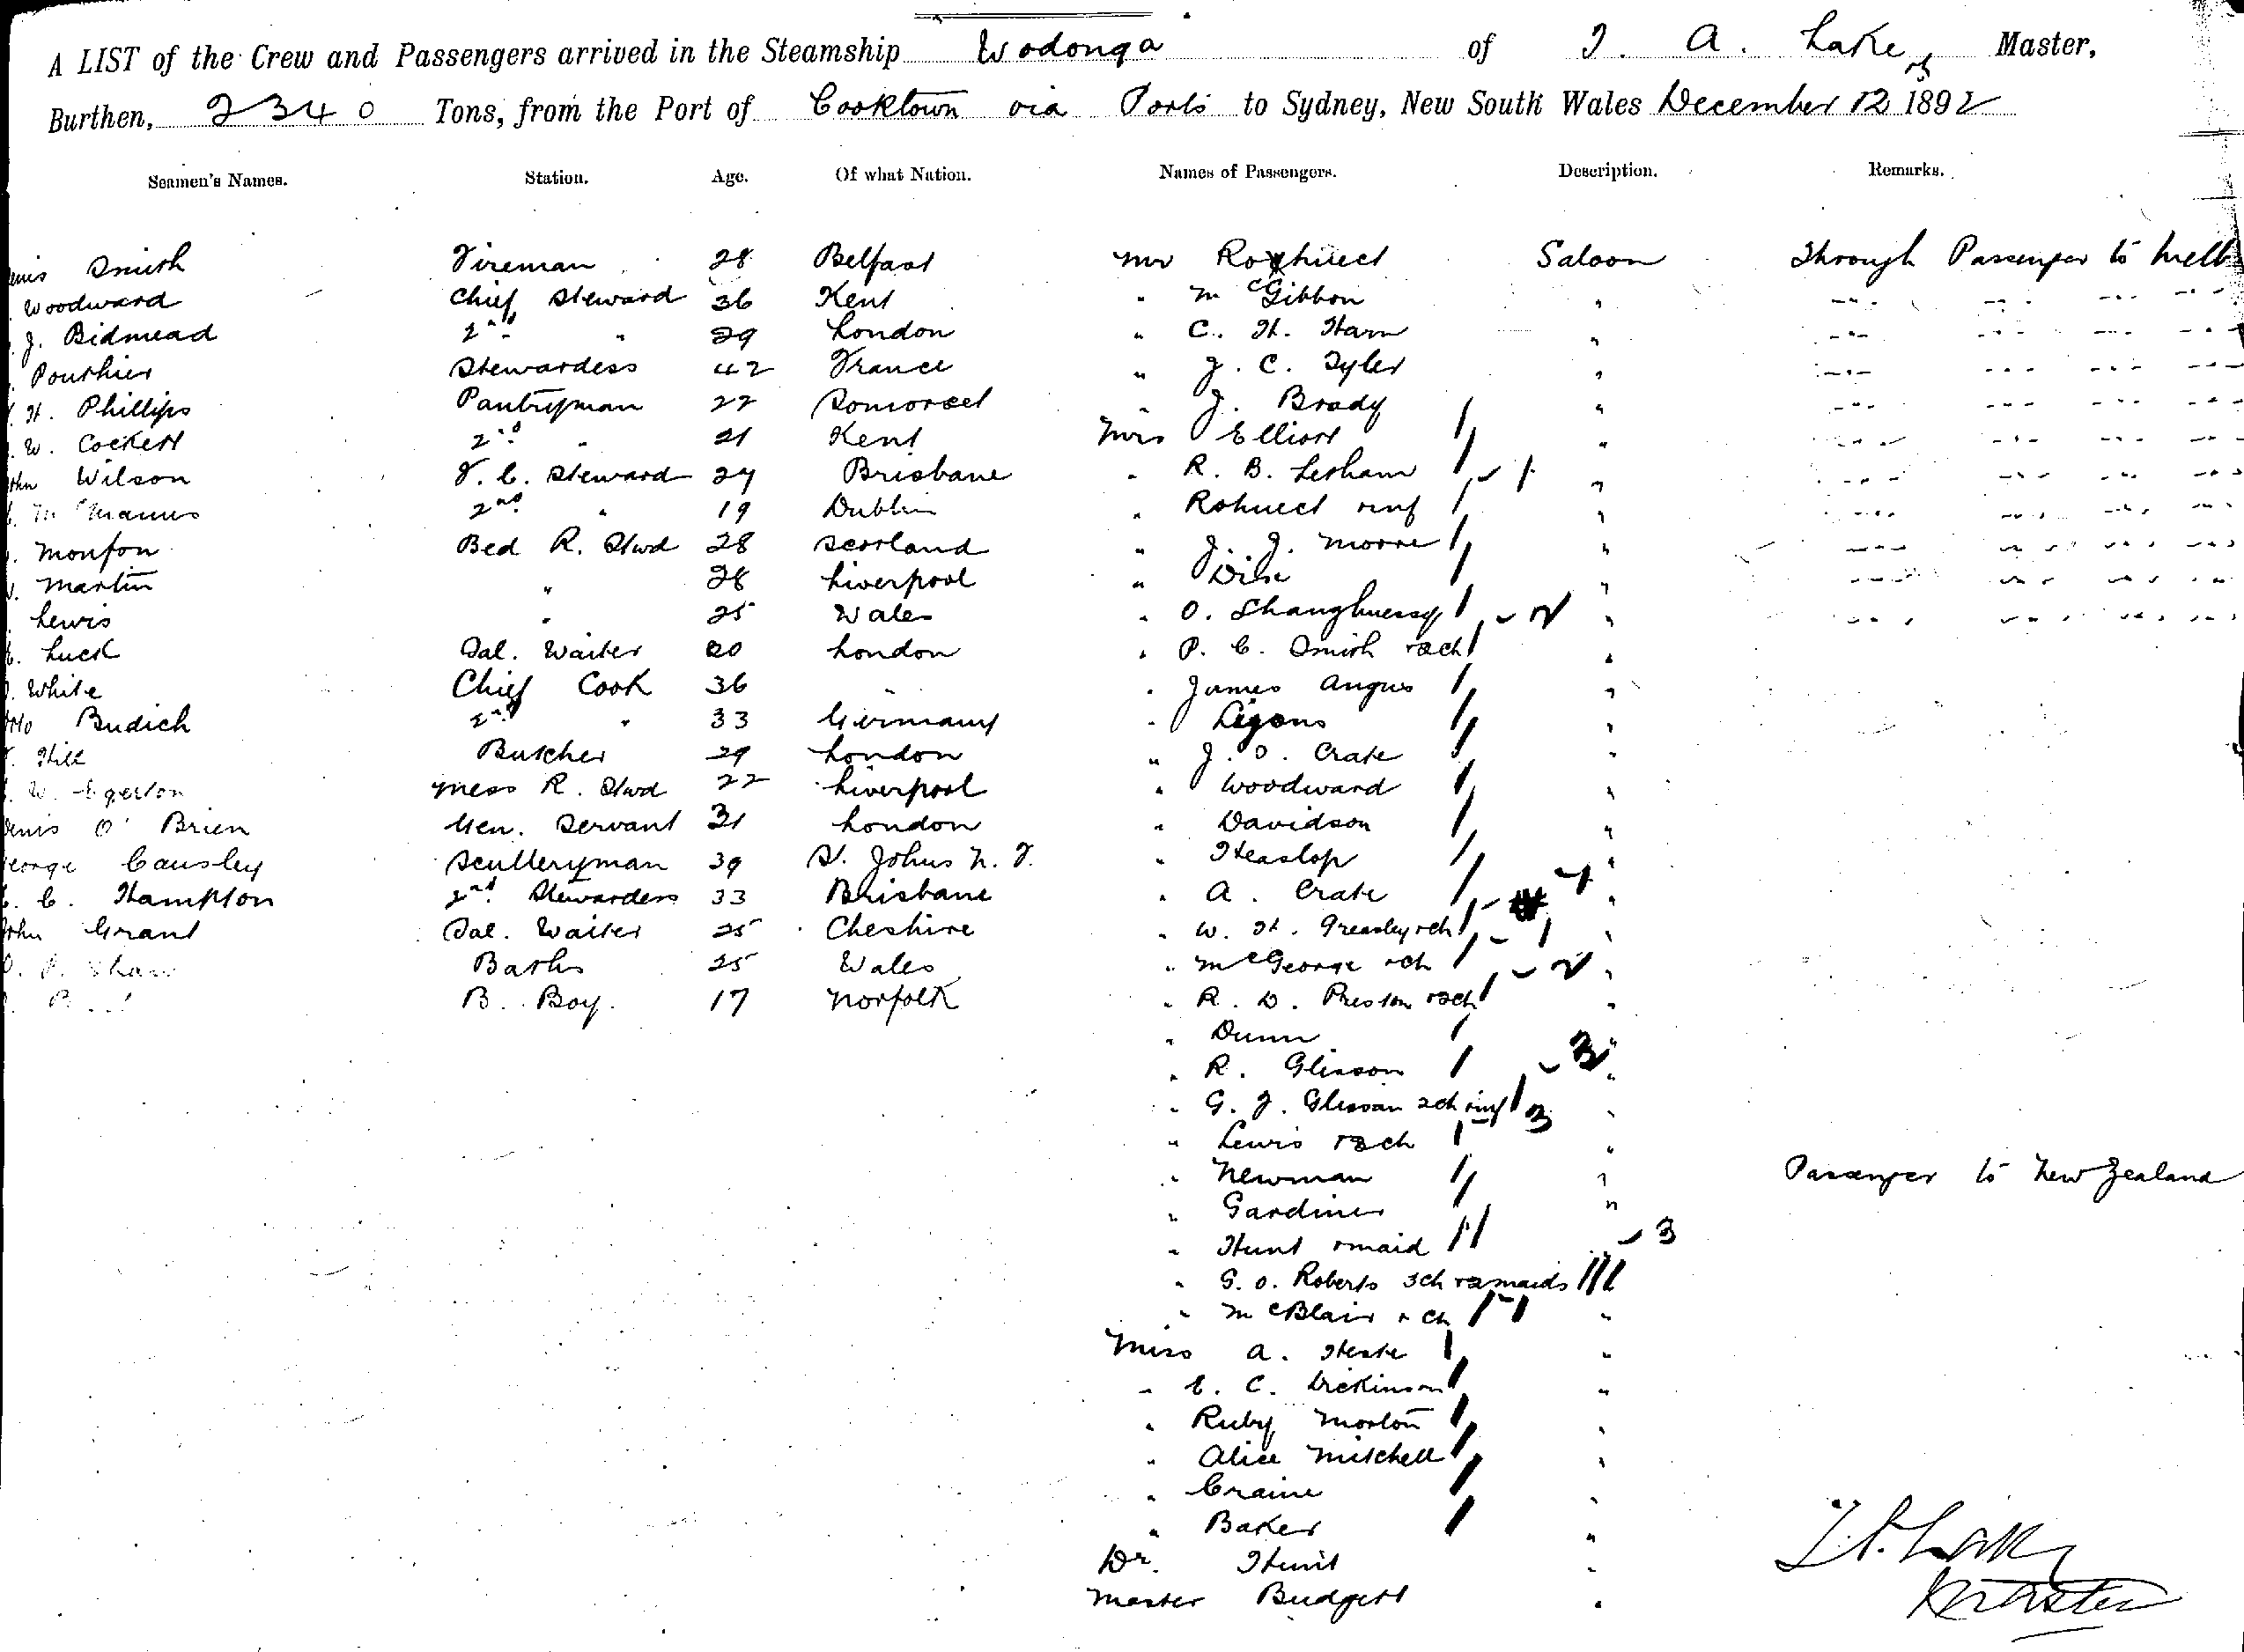 A LIST of the Crew and Passengers arrived in the Steamship Wodonga of J. A. Lake, Master,
Burthen, 2340 Tons, from the Port of Cooktown via Ports to Sydney, New South Wales December 12 1892
Seamen's Names. Station. Age. Of what Nation. Names of Passengers. Description. Remarks.
Smith Fireman 28 Belfast Mr Saloon Through Passenger to Melb
Woodward Chief Steward 36 Kent " McGibbon "
J. Bidmead 2nd " 29 London " C. H. Ham "
Pouthier Stewardess 42 France " J. C. Tyler "
H. Phillips Pantryman 22 Somerset " J. Brady "
W. Cockett 2nd " 21 Kent Mrs Elliott "
Wilson F. C. Steward 24 Brisbane " R. B. Letham 1 "
McManus 2nd " 19 Dublin " inf "
Bed R. Stwd 28 Scotland " J. J. Moore "
Martin " 28 Liverpool " "
Lewis " 25 Wales " O. Shaughnessy 2 "
Luck Sal. Waiter 20 London " P. C. Smith ch "
White Chief Cook 36 " " James Angus "
Budich 2nd " 33 Germany " Lyons "
Hill Butcher 29 London " J. O. Crate "
W. Egerton Mess R. Stwd 22 Liverpool " Woodward "
O'Brien Gen. Servant 31 London " Davidson "
George Causley Sculleryman 39 St. Johns N. F. " Heaslop "
C. Hampton 2nd Stewardess 33 Brisbane " A. Crate "
John Grant Sal. Waiter 25 Cheshire " W. H. Greasley + ch 1 "
Shaw Baths 25 Wales " McGeorge + ch 2 "
B. Boy. 17 Norfolk " R. D. Preston ch "
" Dunn "
" R. Glisson 3 "
" G. J. Glissan 2 ch + inf 3 "
" Lewis ch "
" Newman " Passenger to New Zealand
" Gardiner "
" Hunt + maid 3
" G. O. Roberts 3 ch + 2 maids
" McBlair + ch "
Miss A. "
" E. C. Dickinson "
" Ruby Morton "
" Alice Mitchell "
" Craine "
" Baker "
Dr. "
Master Budgett "
J. A. Lake
Master